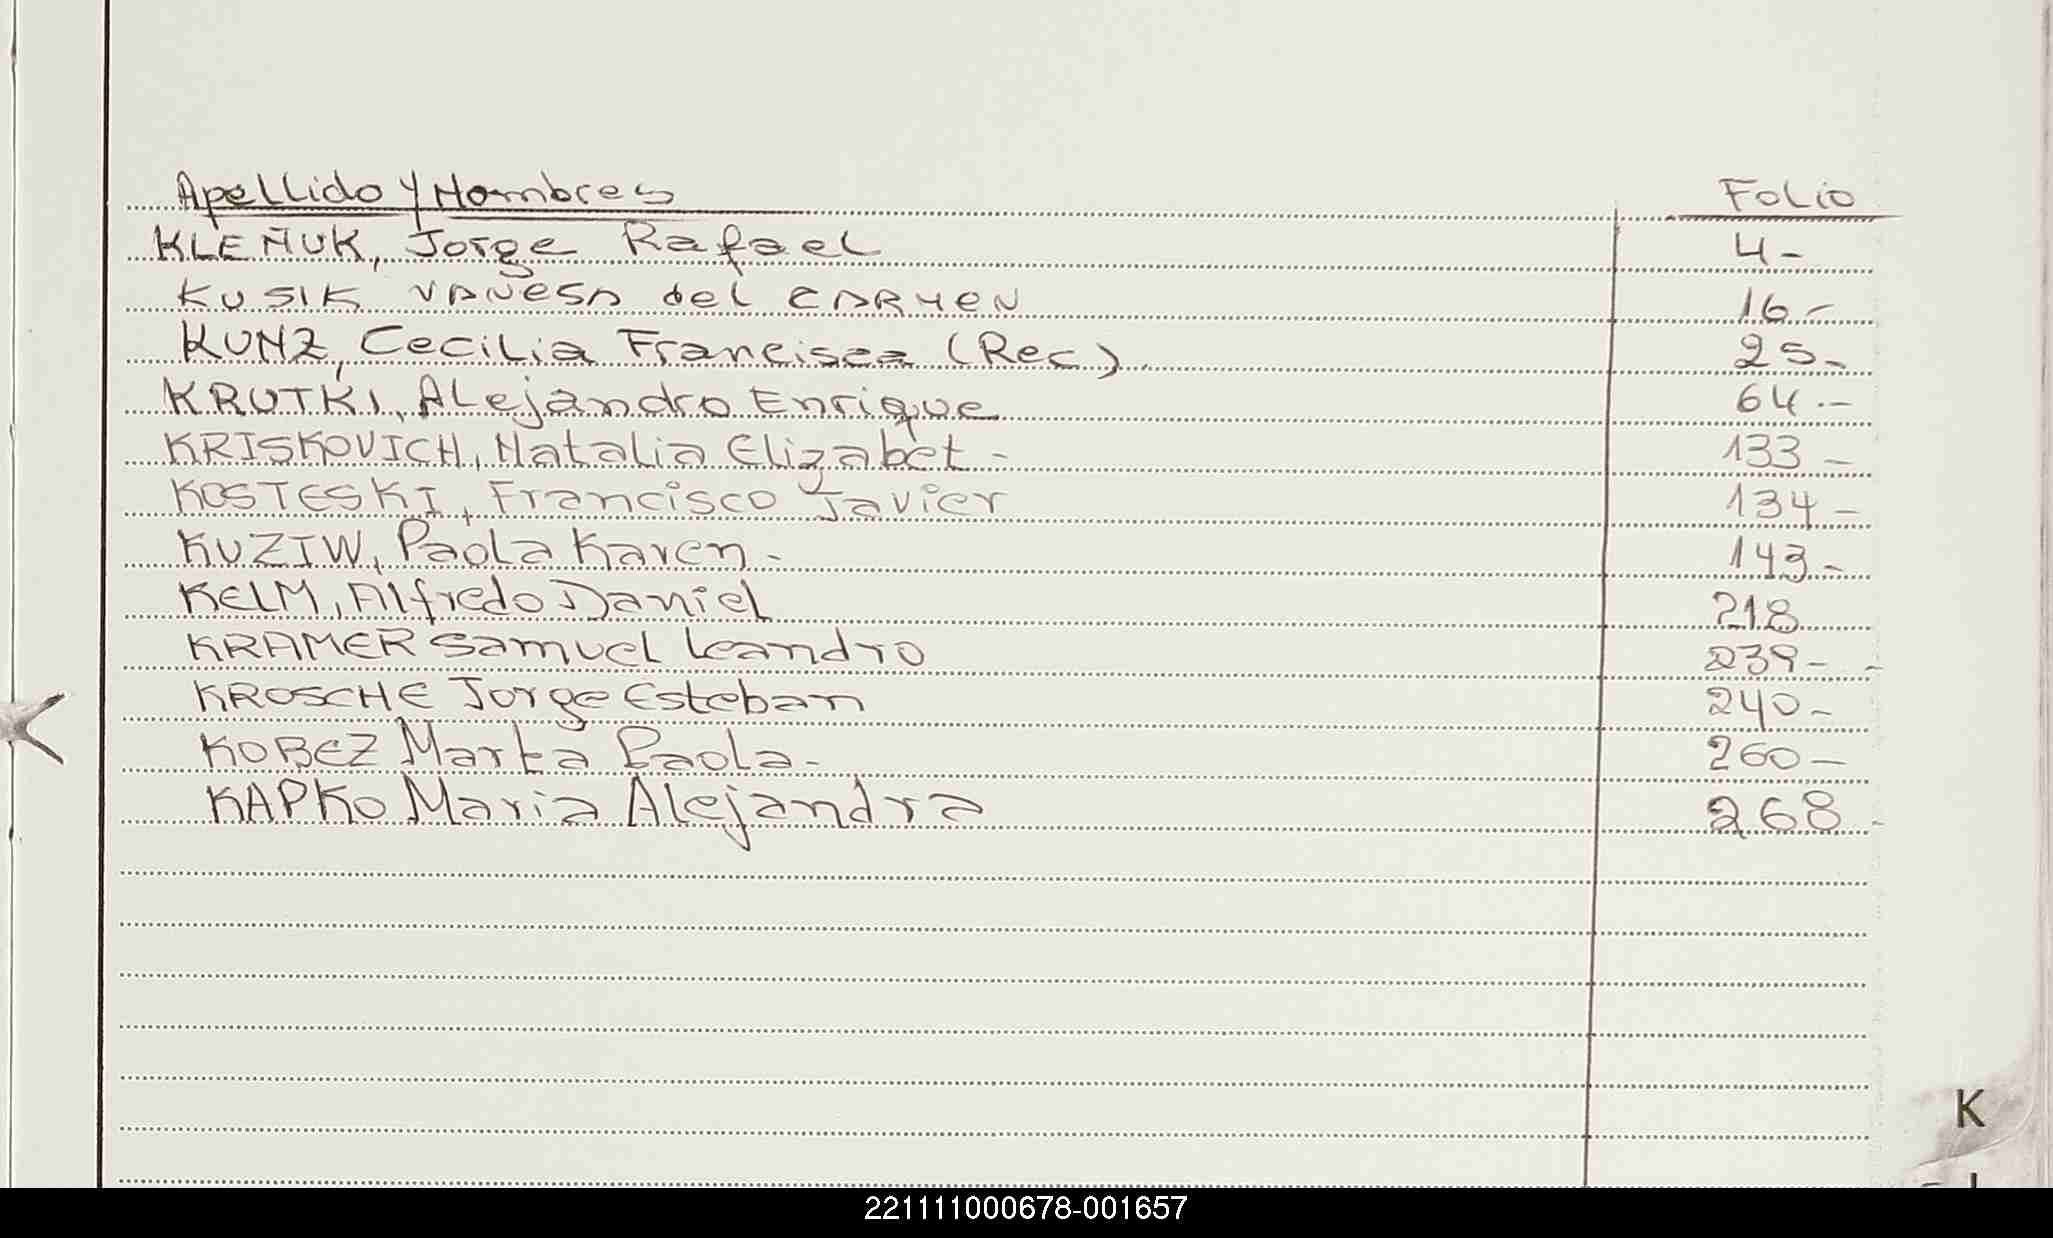 Apellido y Nombres Folio
KLEÑUK, Jorge Rafael 4-
KUSIK VANESA del CARMEN 16-
KUNZ, Cecilia Francisca (Rec) 25-
KRUTKI, Alejandro Enrique 64.-
KRISKOVICH, Natalia Elizabet - 133-
KOSTESKI, Francisco Javier 134-
KUZIW, Paola Karen - 143-
KELM, Alfredo Daniel 218
KRAMER Samuel Leandro 239-
KROSCHE Jorge Esteban 240-
KOBEZ Marta Paola - 260-
KAPKO Maria Alejandra 268
K
221111000678-001657